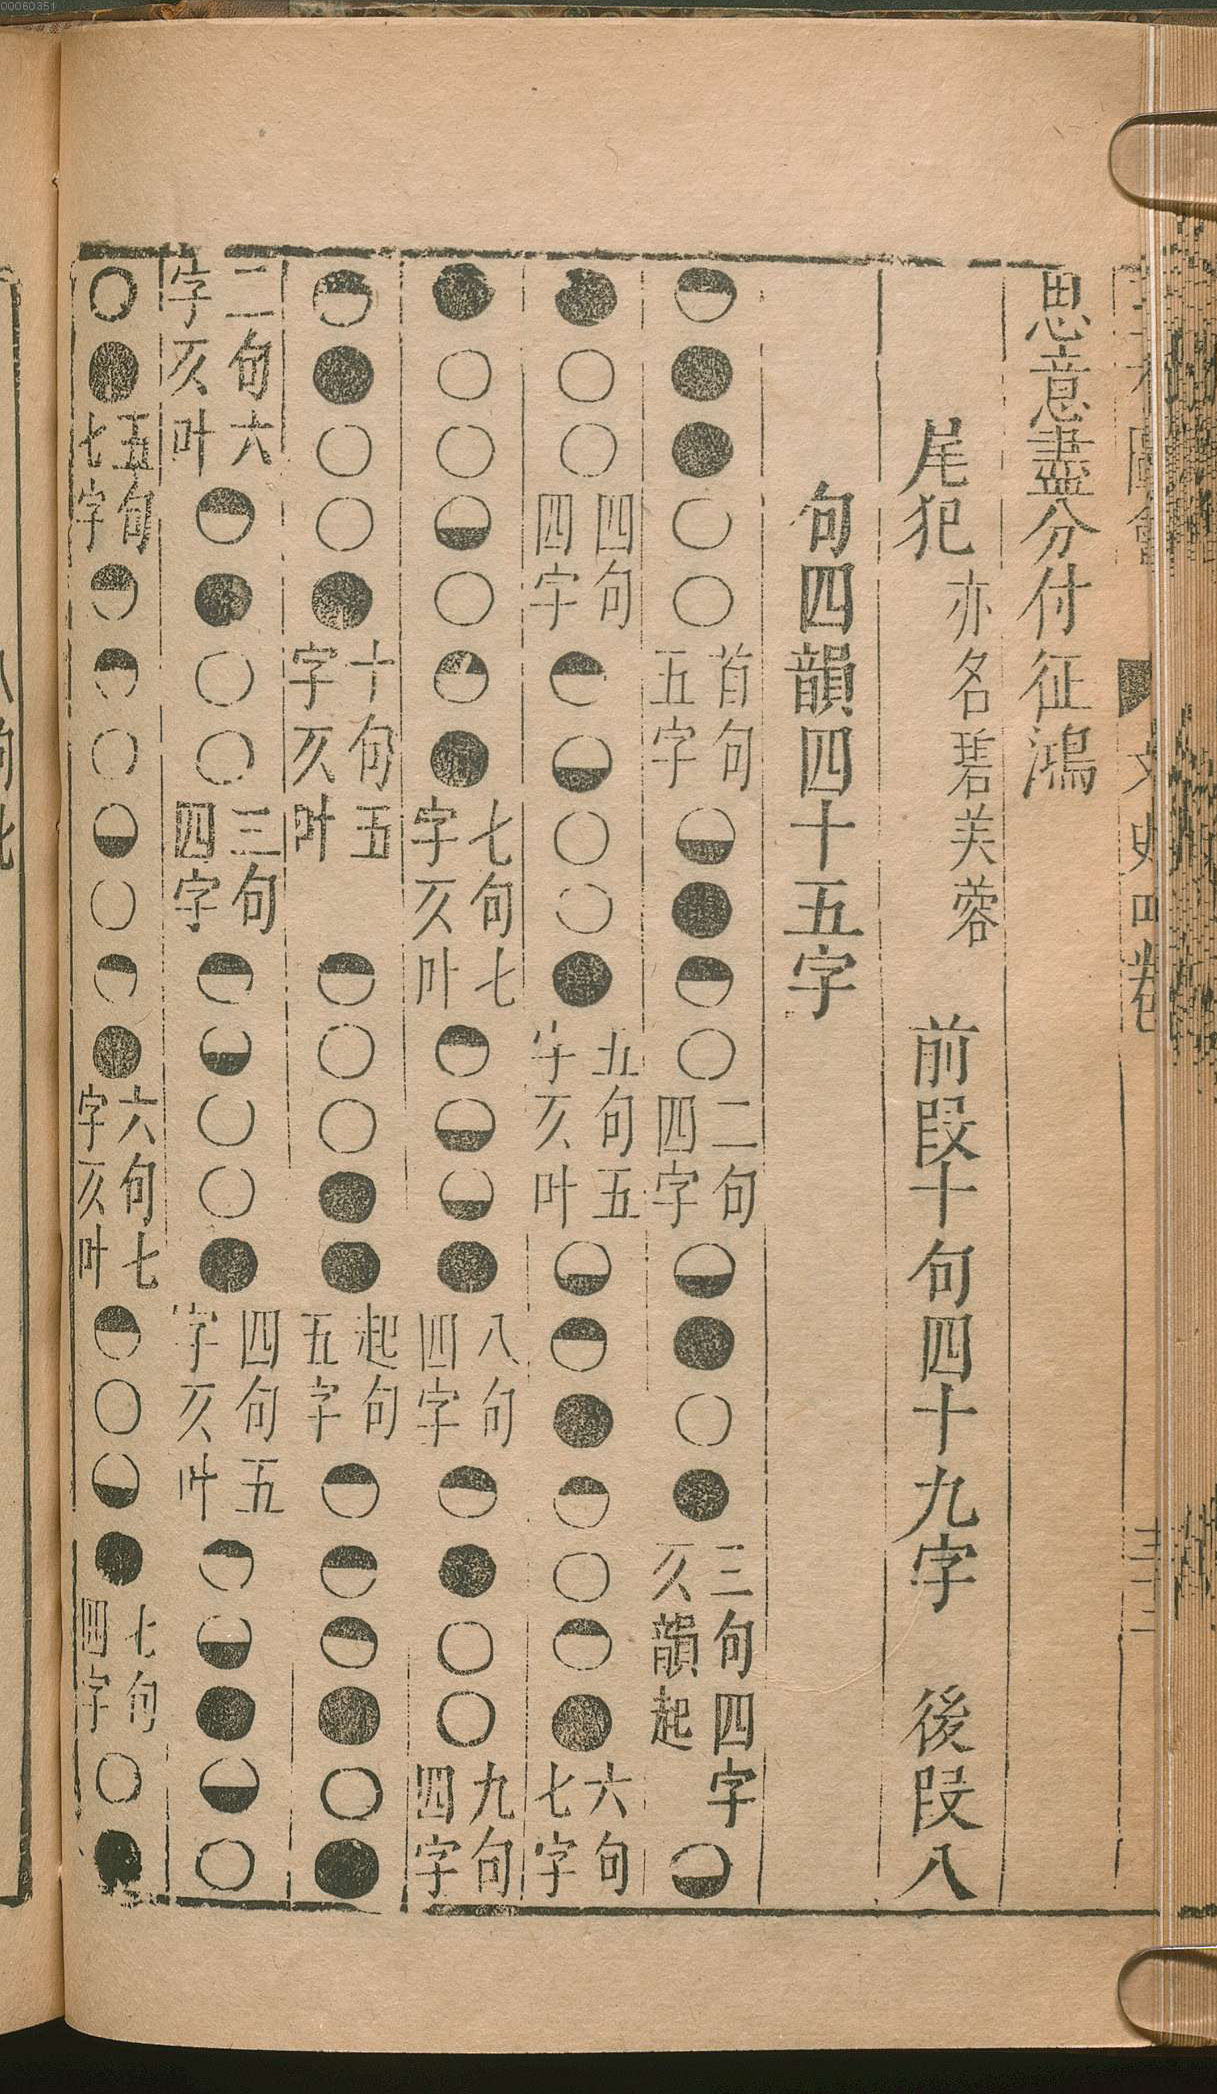 00060351
文史四卷
思意盡分付征鴻
尾犯 亦名碧芙蓉 前段十句四十九字 後段八
句四韻四十五字
◓●●○○首句五字◒●◓○二句四字◒●○●三句四字仄韻起◒
●○○四句四字◓◒○○●五句五字仄叶◒◓●◓○◓●六句七字
●○○◒○◓●七句七字仄叶◓◒◒●八句四字◓●○○九句四字
◓●○○●十句五字仄叶◓○○●●起句五字◓◓◓●○●
二句六字仄叶◓●○○三句四字◓◒○○●四句五字仄叶◓◒●◒○
○●五句七字◓◓○◒○◓●六句七字仄叶◓○◒●七句四字○●